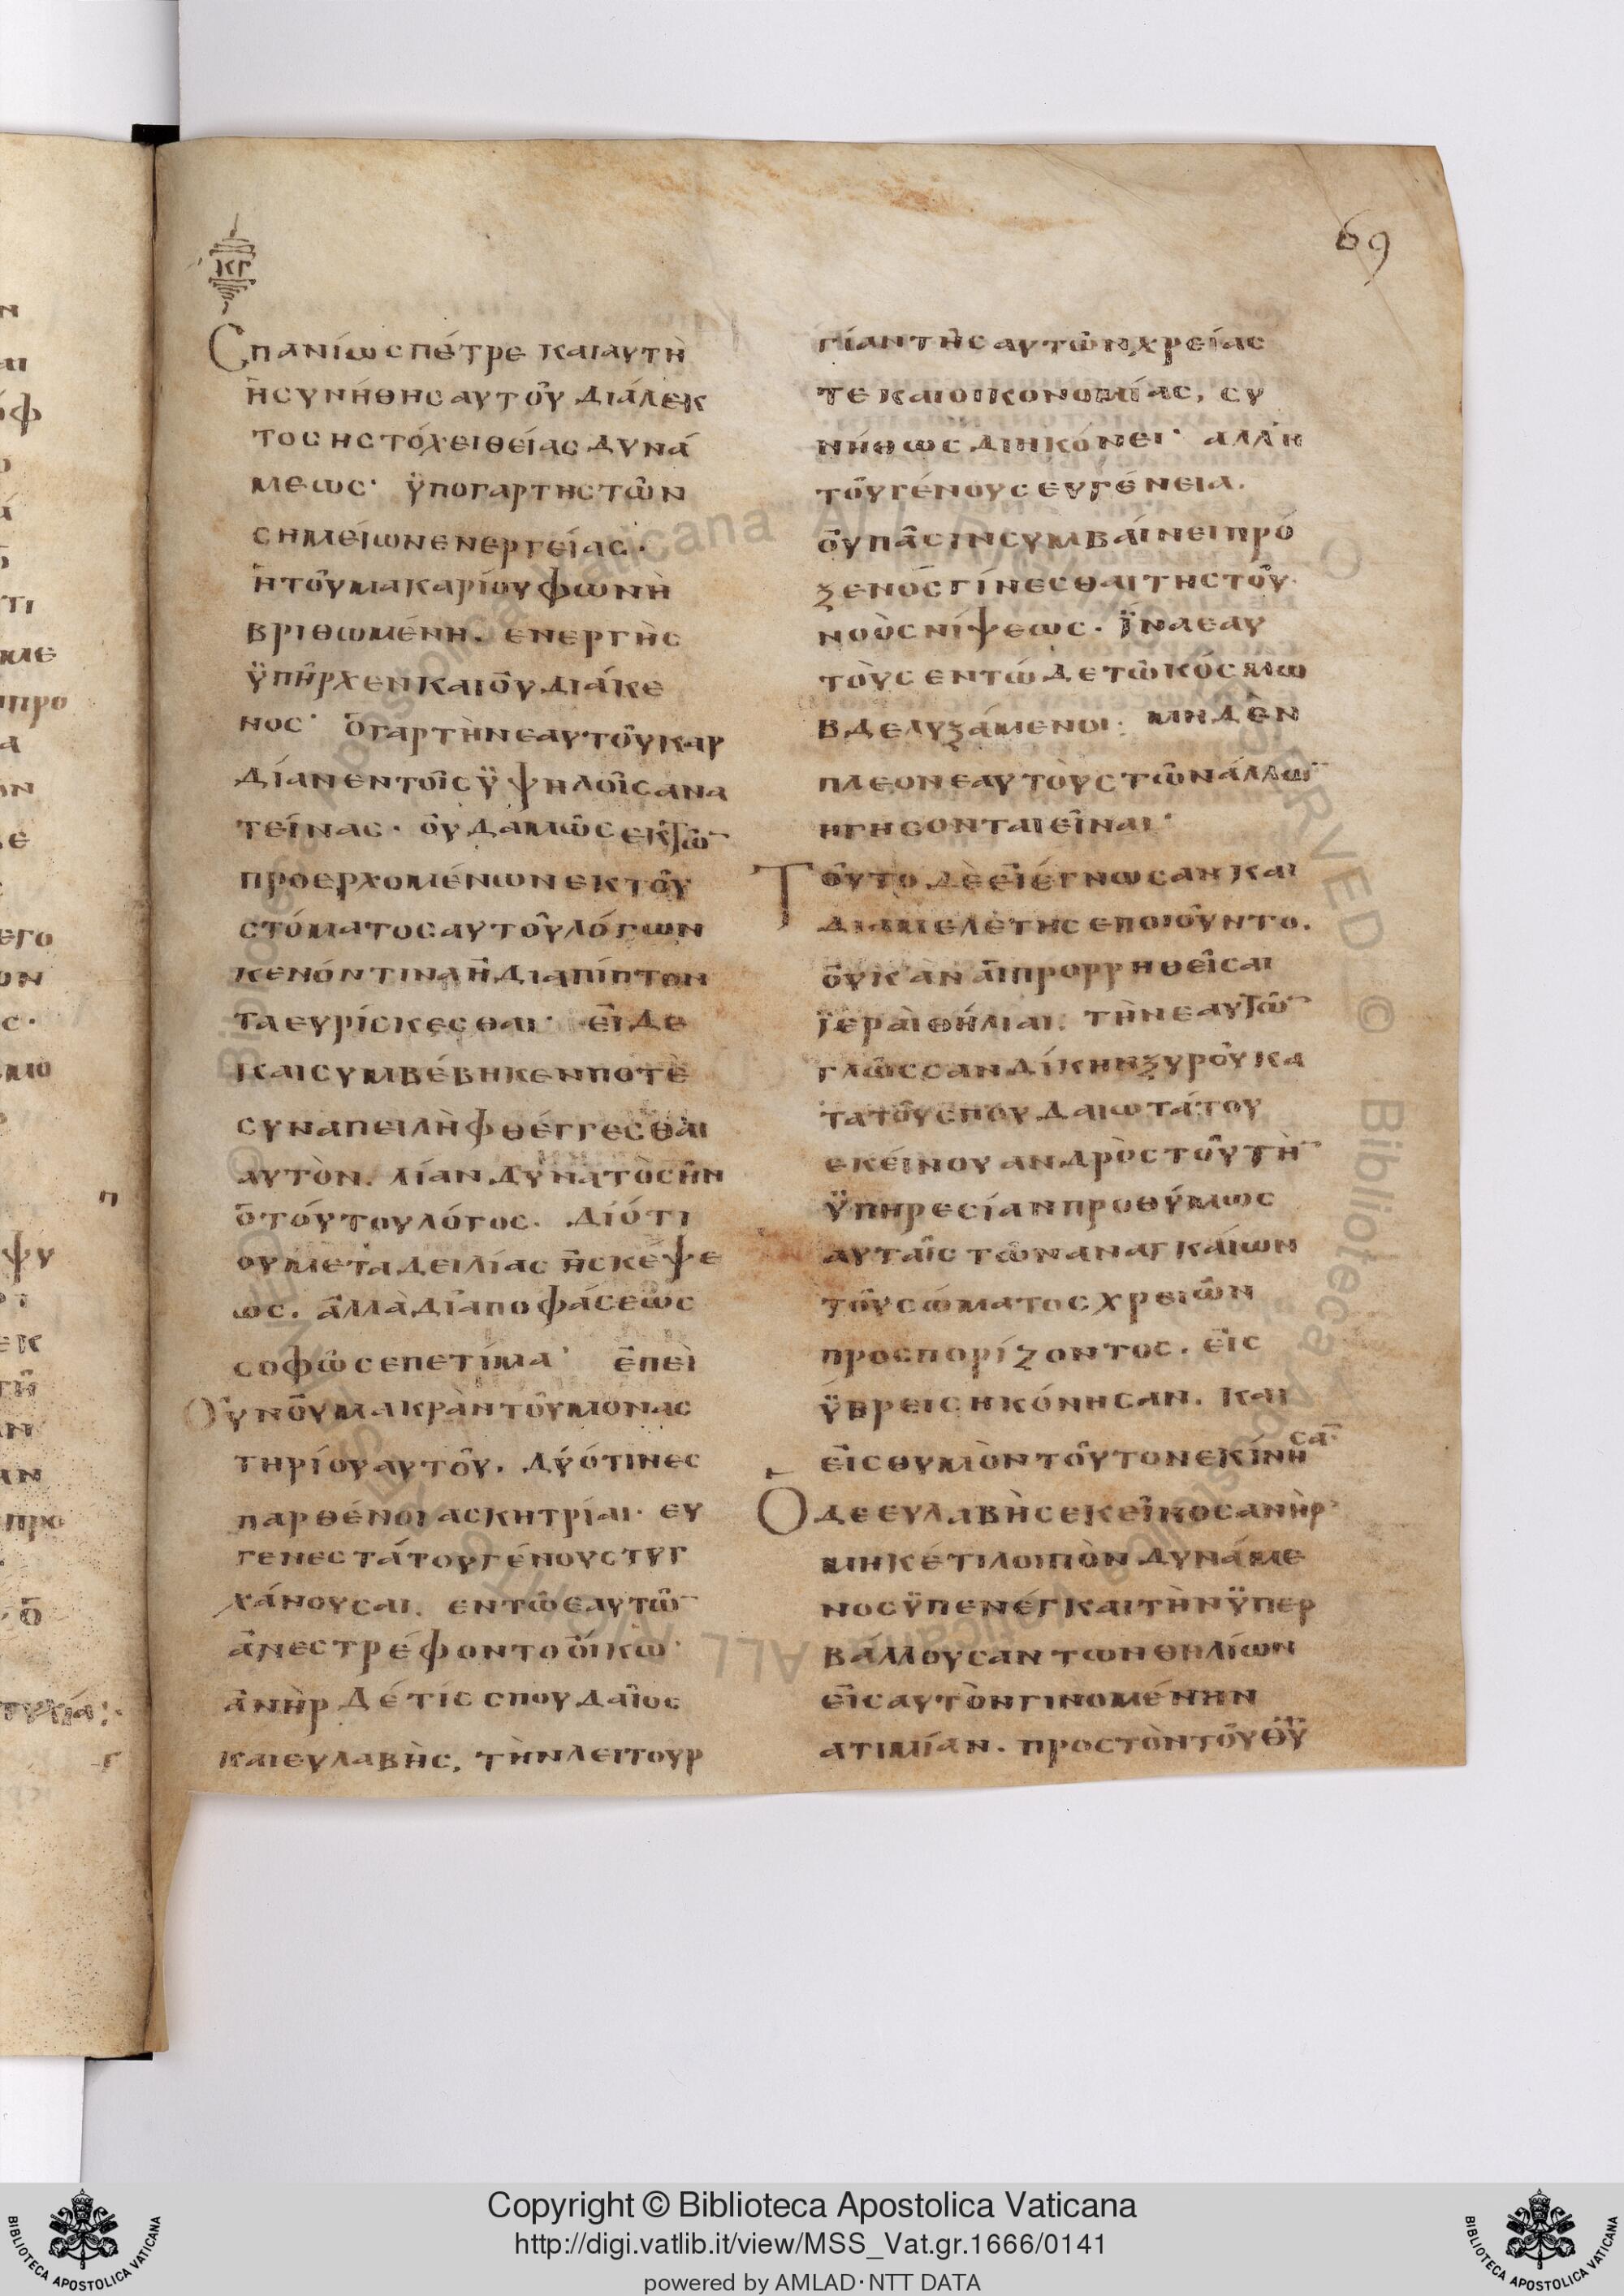 69
κγ
Cπανίως πέτρε καὶ αυτὴ
ἡ συνήθης αυτοῦ διάλεκ
τος ηστόχει θείας δυνά
μεως· ϋπο γαρ της τῶν
σημείων ενεργείας·
ἡ τοῦ μακαρίου φωνὴ
βριθωμένη. ενεργὴς
ϋπῆρχεν καὶ οὐ διάκε
νος· ὃ γαρ τὴν εαυτοῦ καρ
δίαν εν τοῖς ϋψηλοῖς ανα
τείνας· οὐδαμῶς εκ τῶ̅
προερχομένων εκ τοῦ
στόματος αυτοῦ λόγων
κενόν τινα ἢ διαπίπτον
τα ευρίσκεσθαι· εἰ δε
και συμβέβηκεν ποτὲ
συν απειλὴ φθέγγεσθαι
αυτὸν. λίαν δυνατὸς ἦν
ὃ τούτου λόγος. διότι
ου μετα δειλίας ἢ σκέψε
ως. ἀλλὰ δι αποφάσεως
σοφῶς επετίμα· ἐπεὶ
Ουν οὐ μακρὰν τοῦ μονασ
τηρίου αυτοῦ. δύό τινες
παρθένοι ασκητρίαι· ευ
γενεστάτου γένους τυγ
χάνουσαι. εν τῶ εαυτῶ̅
ἀνεστρέφοντο οἴκω·
ἀνὴρ δέ τίς σπουδαῖος
και ευλαβὴς, τὴν λειτουρ
γίαν τῆς αυτῶν χρείας
τε και οικονομίας, συ
νήθως διηκόνει· αλλ ἡ
τοῦ γένους ευγένεια.
οὐ πᾶσιν συμβαίνει πρό
ξενος γίνεσθαι της τοῦ
νοὸς νίψεως. ἵνα εαυ
τοὺς εν τώδε τῶ κόσμω
βδελυξάμενοι· μηδὲν
πλεον εαυτοὺς τῶν άλλω̅
ηγησονται εἶναι·
Τοῦτο δὲ εἰ έγνωσαν και
δια μελέτης εποιοῦντο.
οὐκ ὰν αἱ προρρηθεῖσαι
ϊεραὶ θήλιαι. τὴν εαυτῶ̅
γλῶσσαν δίκην ξυροῦ κα
τα τοῦ σπουδαιωτάτου
εκείνου ανδρὸς τοῦ τὴ̅
ϋπηρεσίαν προθύμως
αυταῖς τῶν αναγκαίων
τοῦ σώματος χρειῶν
προσπορίζοντος. εἰς
ϋβρεις ηκόνησαν. και
εἰς θυμὸν τοῦτον εκίνησα̅
Ὁ δε ευλαβὴς εκεῖνος ανὴρ
μηκέτι λοιπὸν δυνάμε
νος ϋπενέγκαι τὴν ϋπερ
βάλλουσαν των θηλίων
εἰς αυτὸν γινομένην
ατιμίαν. προς τὸν τοῦ θ̅υ̅
Copyright © Biblioteca Apostolica Vaticana
http://digi.vatlib.it/view/MSS_Vat.gr.1666/0141
powered by AMLAD·NTT DATA
BIBLIOTECA APOSTOLICA VATICANA
BIBLIOTECA APOSTOLICA VATICANA